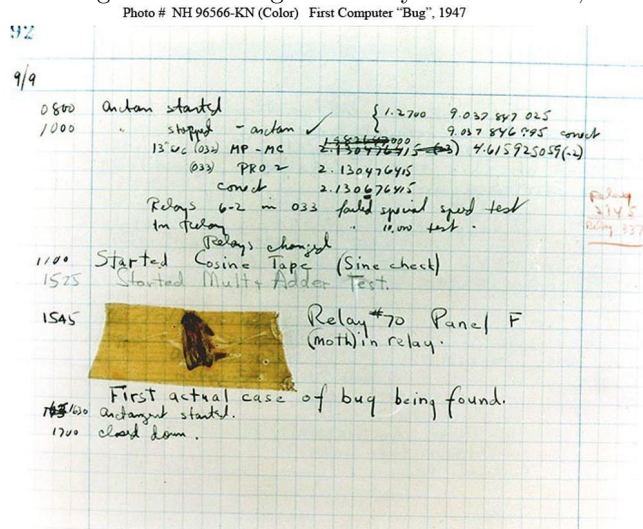 Photo # NH 96566-KN (Color) First Computer “Bug”, 1947
92
9/9
0800 Antan started
1000 " stopped - antan ✓ { 1.2700 9.037 847 025
9.037 846 995 conect
13" uc (032) MP - MC 2.130476415 (-3) 4.615925059(-2)
(033) PRO 2 2.130476415
conect 2.130676415
Relays 6-2 in 033 failed special speed test
In Relay " 10,000 test .
Relays changed
Relay
1100 Started Cosine Tape (Sine check)
1525 Started Mult + Adder Test.
1545 Relay #70 Panel F
(moth) in relay.
First actual case of bug being found.
1630 antangent started.
1700 closed down .